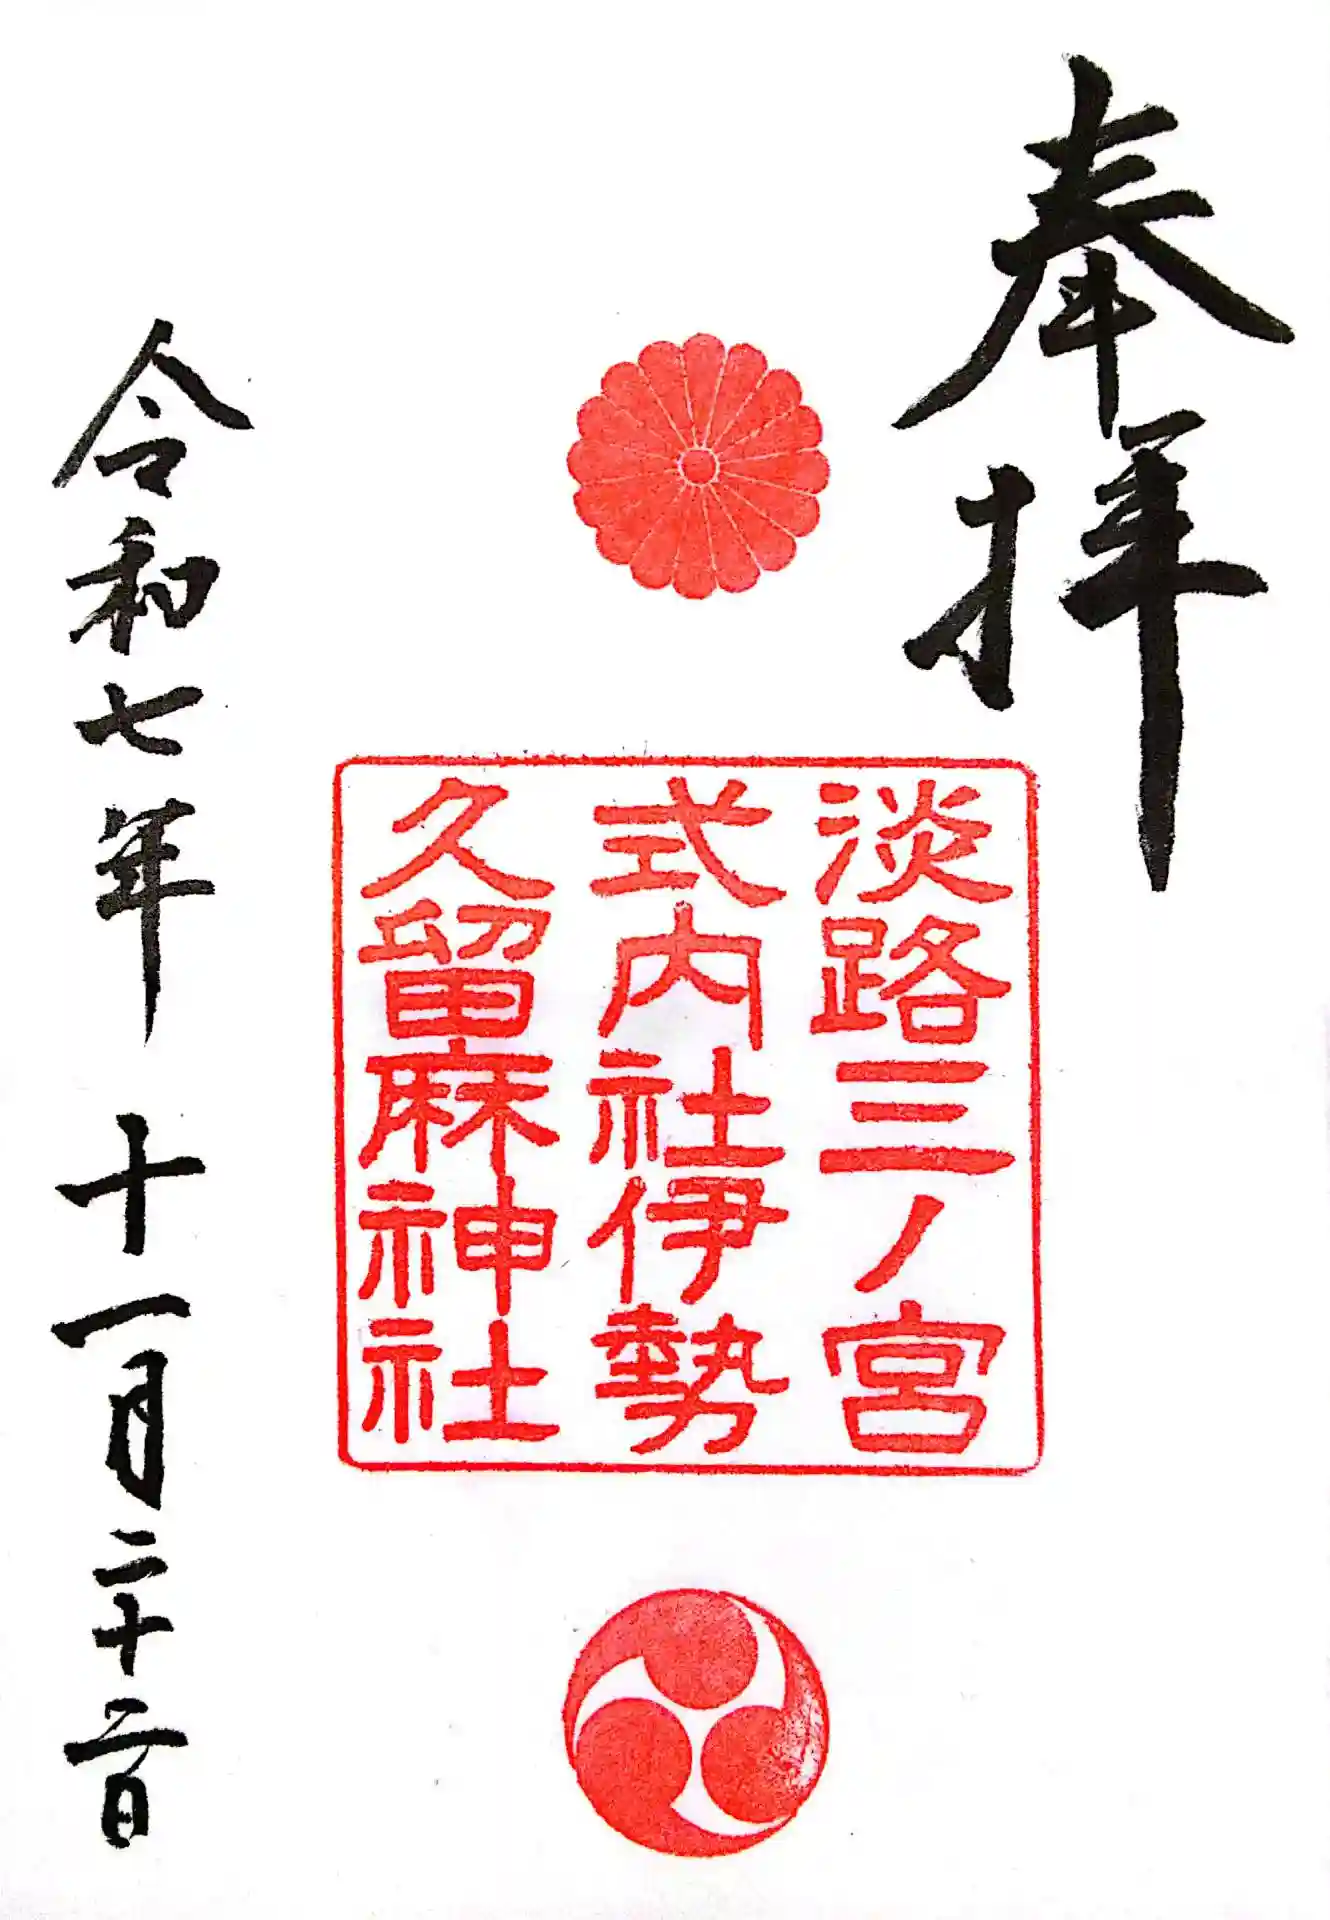 奉拝
淡路三ノ宮
式内社伊勢
久留麻神社
令和七年 十一月二十二日